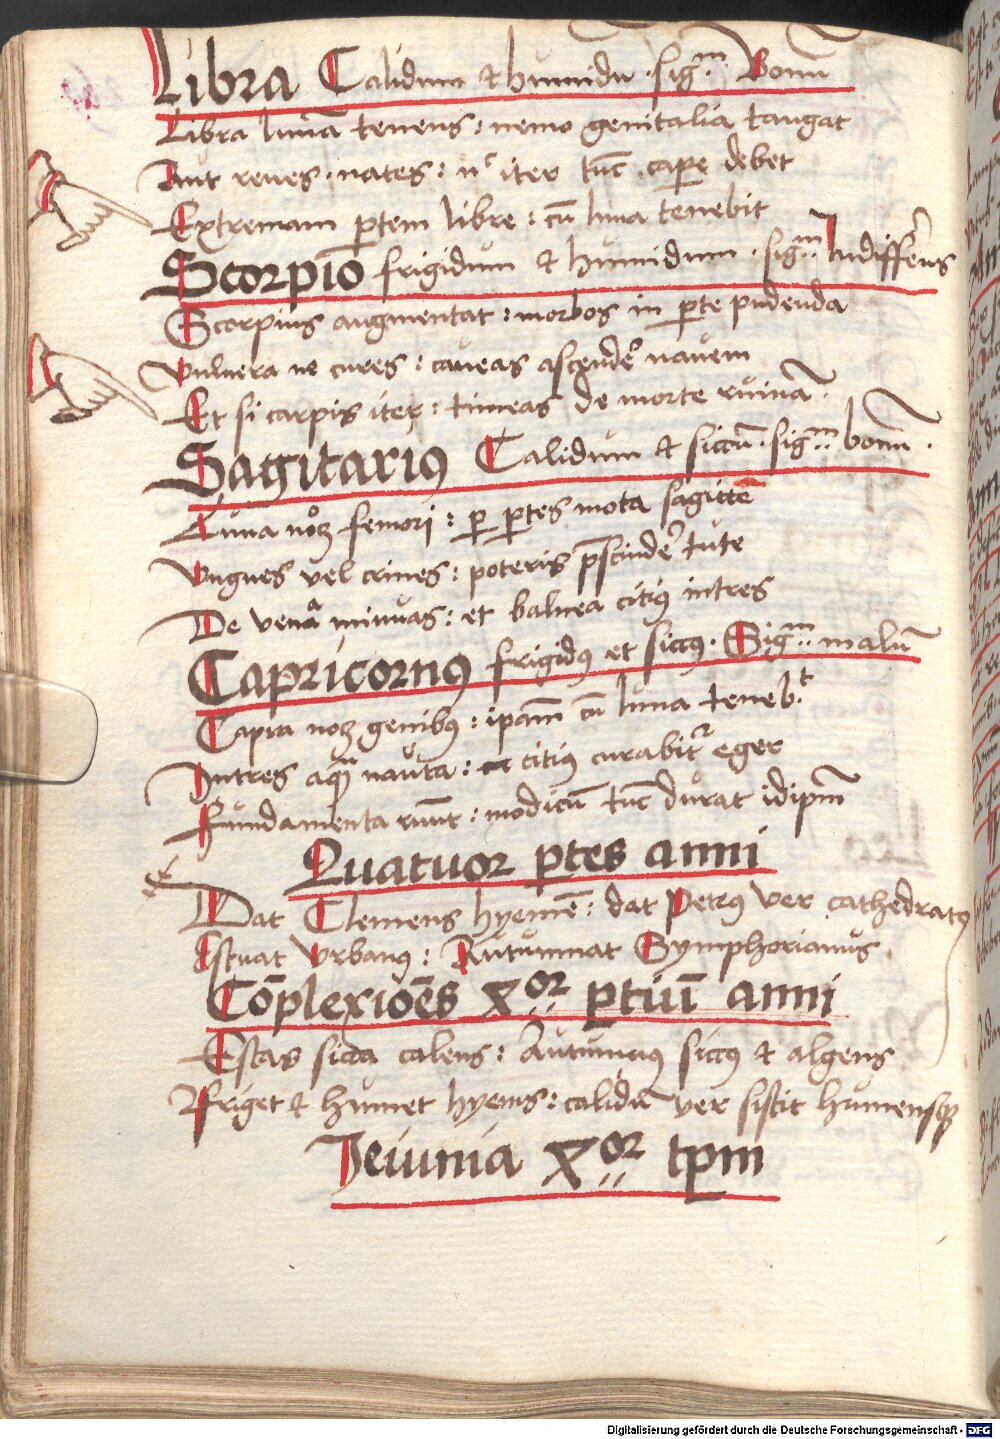 Libra Calidum et humidu͂ · sigm̅ · Bonu͂
Libra luna͂ tenens : nemo genitalia tangat
Aut renes · nates : nc iter tu͂c capere debet
Extremam p͂tem libre : cu͂ luna tenebit
Scorpio frigidum et humidum · sigm̅ Indiffere͂s
Scorpius augmentat : morbos in p͂te pudenda
Vulnera ne cures : caueas ascende͂ nauem
Et si carpis iter : timeas de morte ruina͂ ·
Sagitarius Calidum et siccu͂ · sigm̅ bonu͂ ·
Luna femori : p̲ p̲tes mota sagitte͂
Vngues vel crines : poteris p͂scinde͂ tute
De vena minuas : et balnea citius intres
Capricornus frigidus et siccus · Sigm̅ malu͂
Capra genibus : ipam͂ cu͂ luna teneb·t
Intres nauta : citius curabitr eger
Fundamenta ruu͂t : modicu͂ tu͂c durat idipm͂
Quatuor p̲tes anni
Dat Clemens hyeme͂ : dat Petrus ver cathedratus
Estuat Vrbanus : Autumnat Symphorianus ·
Co͂plexioe͂s Xor p̲tiu͂ anni
Estas sicca calens : Autumnus siccus et algens
Friget et humet hyems : calidu͂ ver sistit humensqȝ
Jeiunia Xor tpm
Digitalisierung gefördert durch die Deutsche Forschungsgemeinschaft - DFG